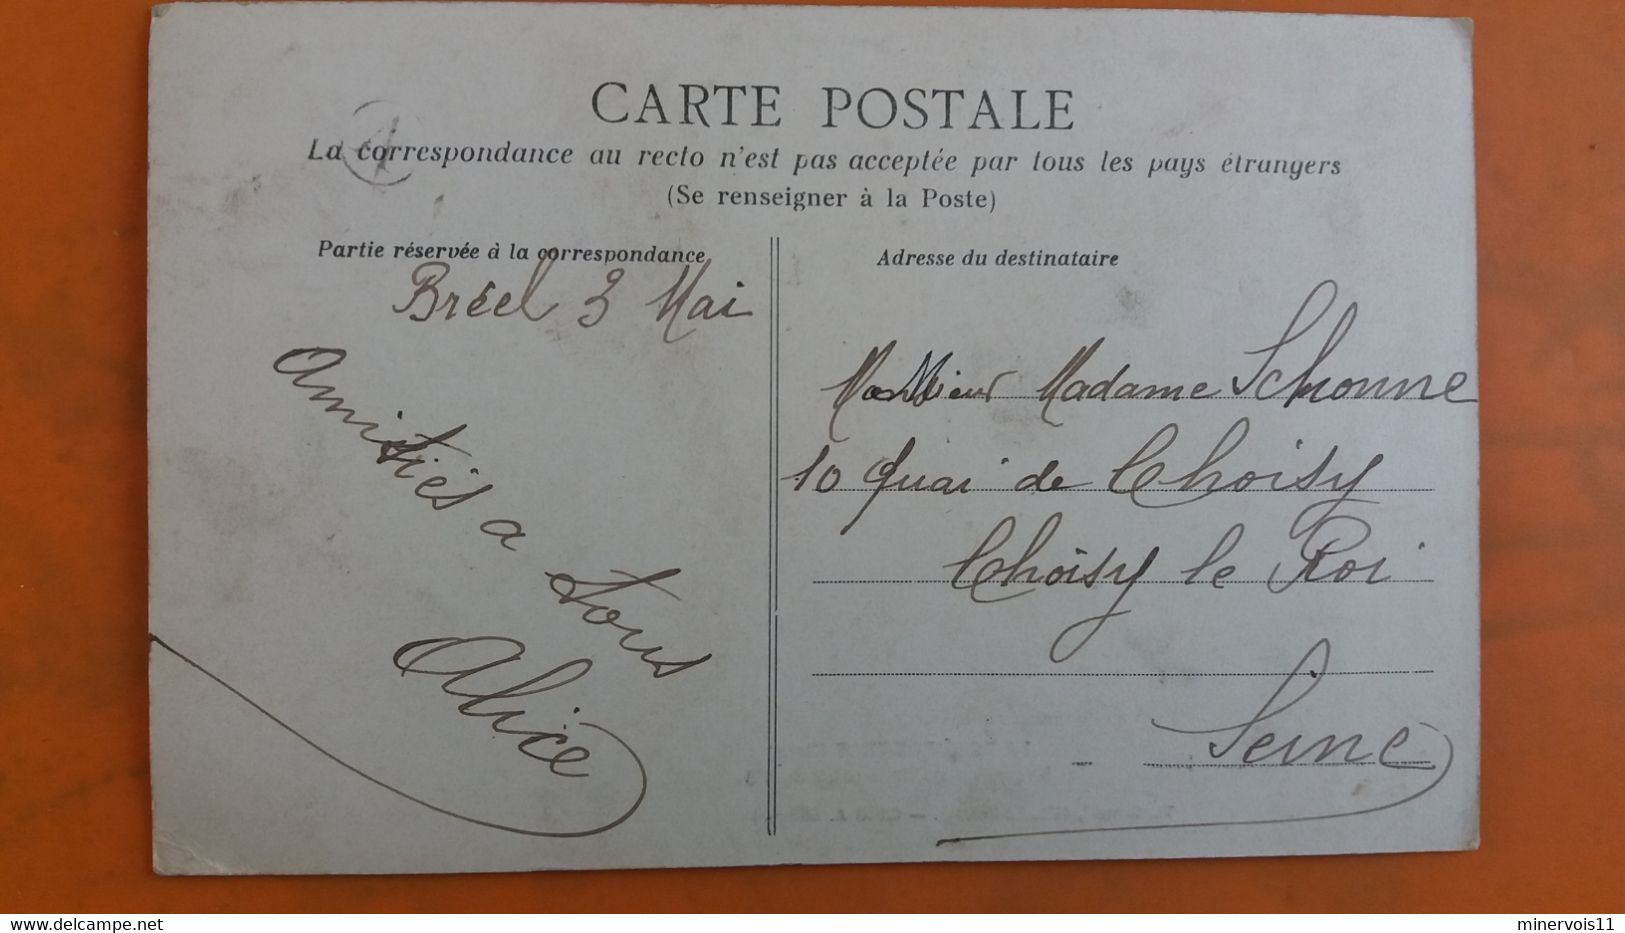 CARTE POSTALE
La correspondance au recto n'est pas acceptée par tous les pays étrangers
(Se renseigner à la Poste)
Partie réservée à la correspondance
Bréel 3 Mai
Amitiés a
tous
Alice
Adresse du destinataire
Monsieur Madame Schonne
10 Quai de Choisy
Choisy le Roi
Seine
www.delcampe.net
minervois11